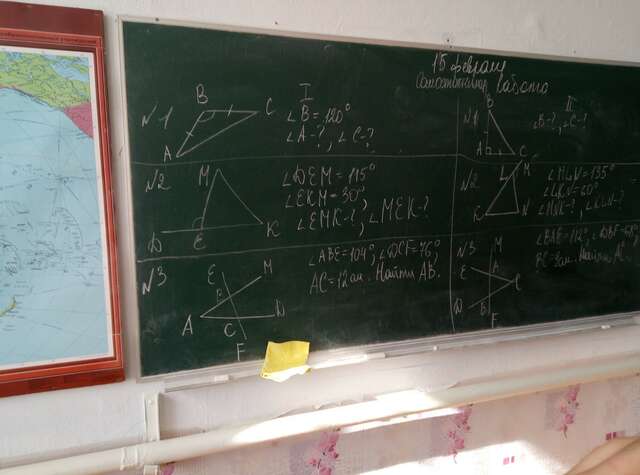 15 февраля
Самостоятельная работа
I
N1
B
C
A
∠B = 120°
∠A - ?, ∠C - ?
N2
M
D
E
K
∠DEM = 115°
∠EKM = 30°,
∠EMK - ?, ∠MEK - ?
N3
E
M
B
A
C
D
F
∠ABE = 104°, ∠DCF = 76°
AC = 12 см. Найти AB.
II
N1
B
A
C
∠B - ?, ∠C - ?
N2
L
M
K
N
∠MLN = 135°
N3
M
E
A
C
D
B
F
∠BAE = 112°, ∠DBF = 68°
BC = 9 см. Найти AC.